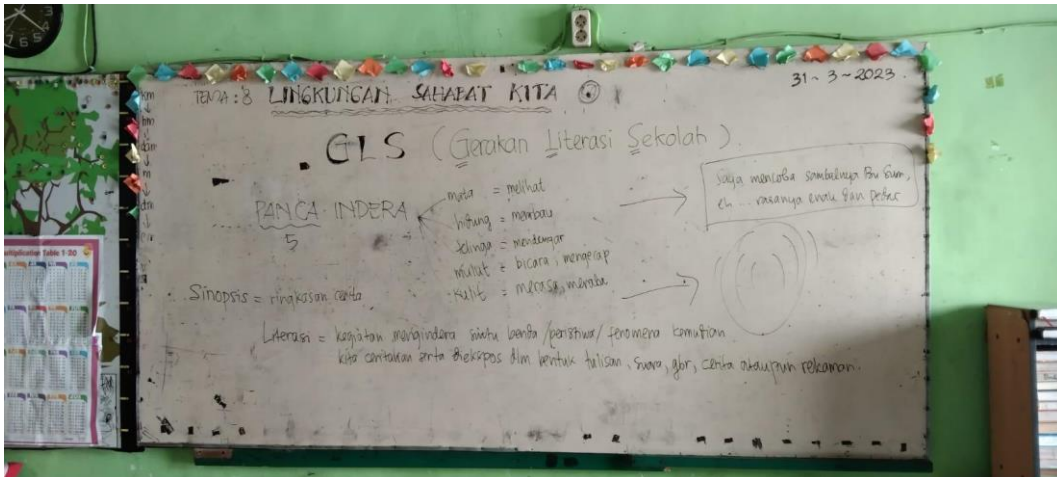 TEMA : 8 LINGKUNGAN SAHABAT KITA
31 - 3 - 2023.
GLS (Gerakan Literasi Sekolah).
PANCA INDERA
5
mata = melihat
hidung = membau
telinga = mendengar
mulut = bicara, mengecap
kulit = merasa, meraba
Saya mencoba sambalnya Bu Sum,
eh ... rasanya enak dan pedas
Sinopsis = ringkasan cerita
Literasi = kegiatan mengindera suatu benda / peristiwa / fenomena kemudian
kita ceritakan serta diekspos dlm bentuk tulisan, suara, gbr, cerita ataupun rekaman.
km
hm
dam
m
dm
Multiplication Table 1-20
7 6 5 4